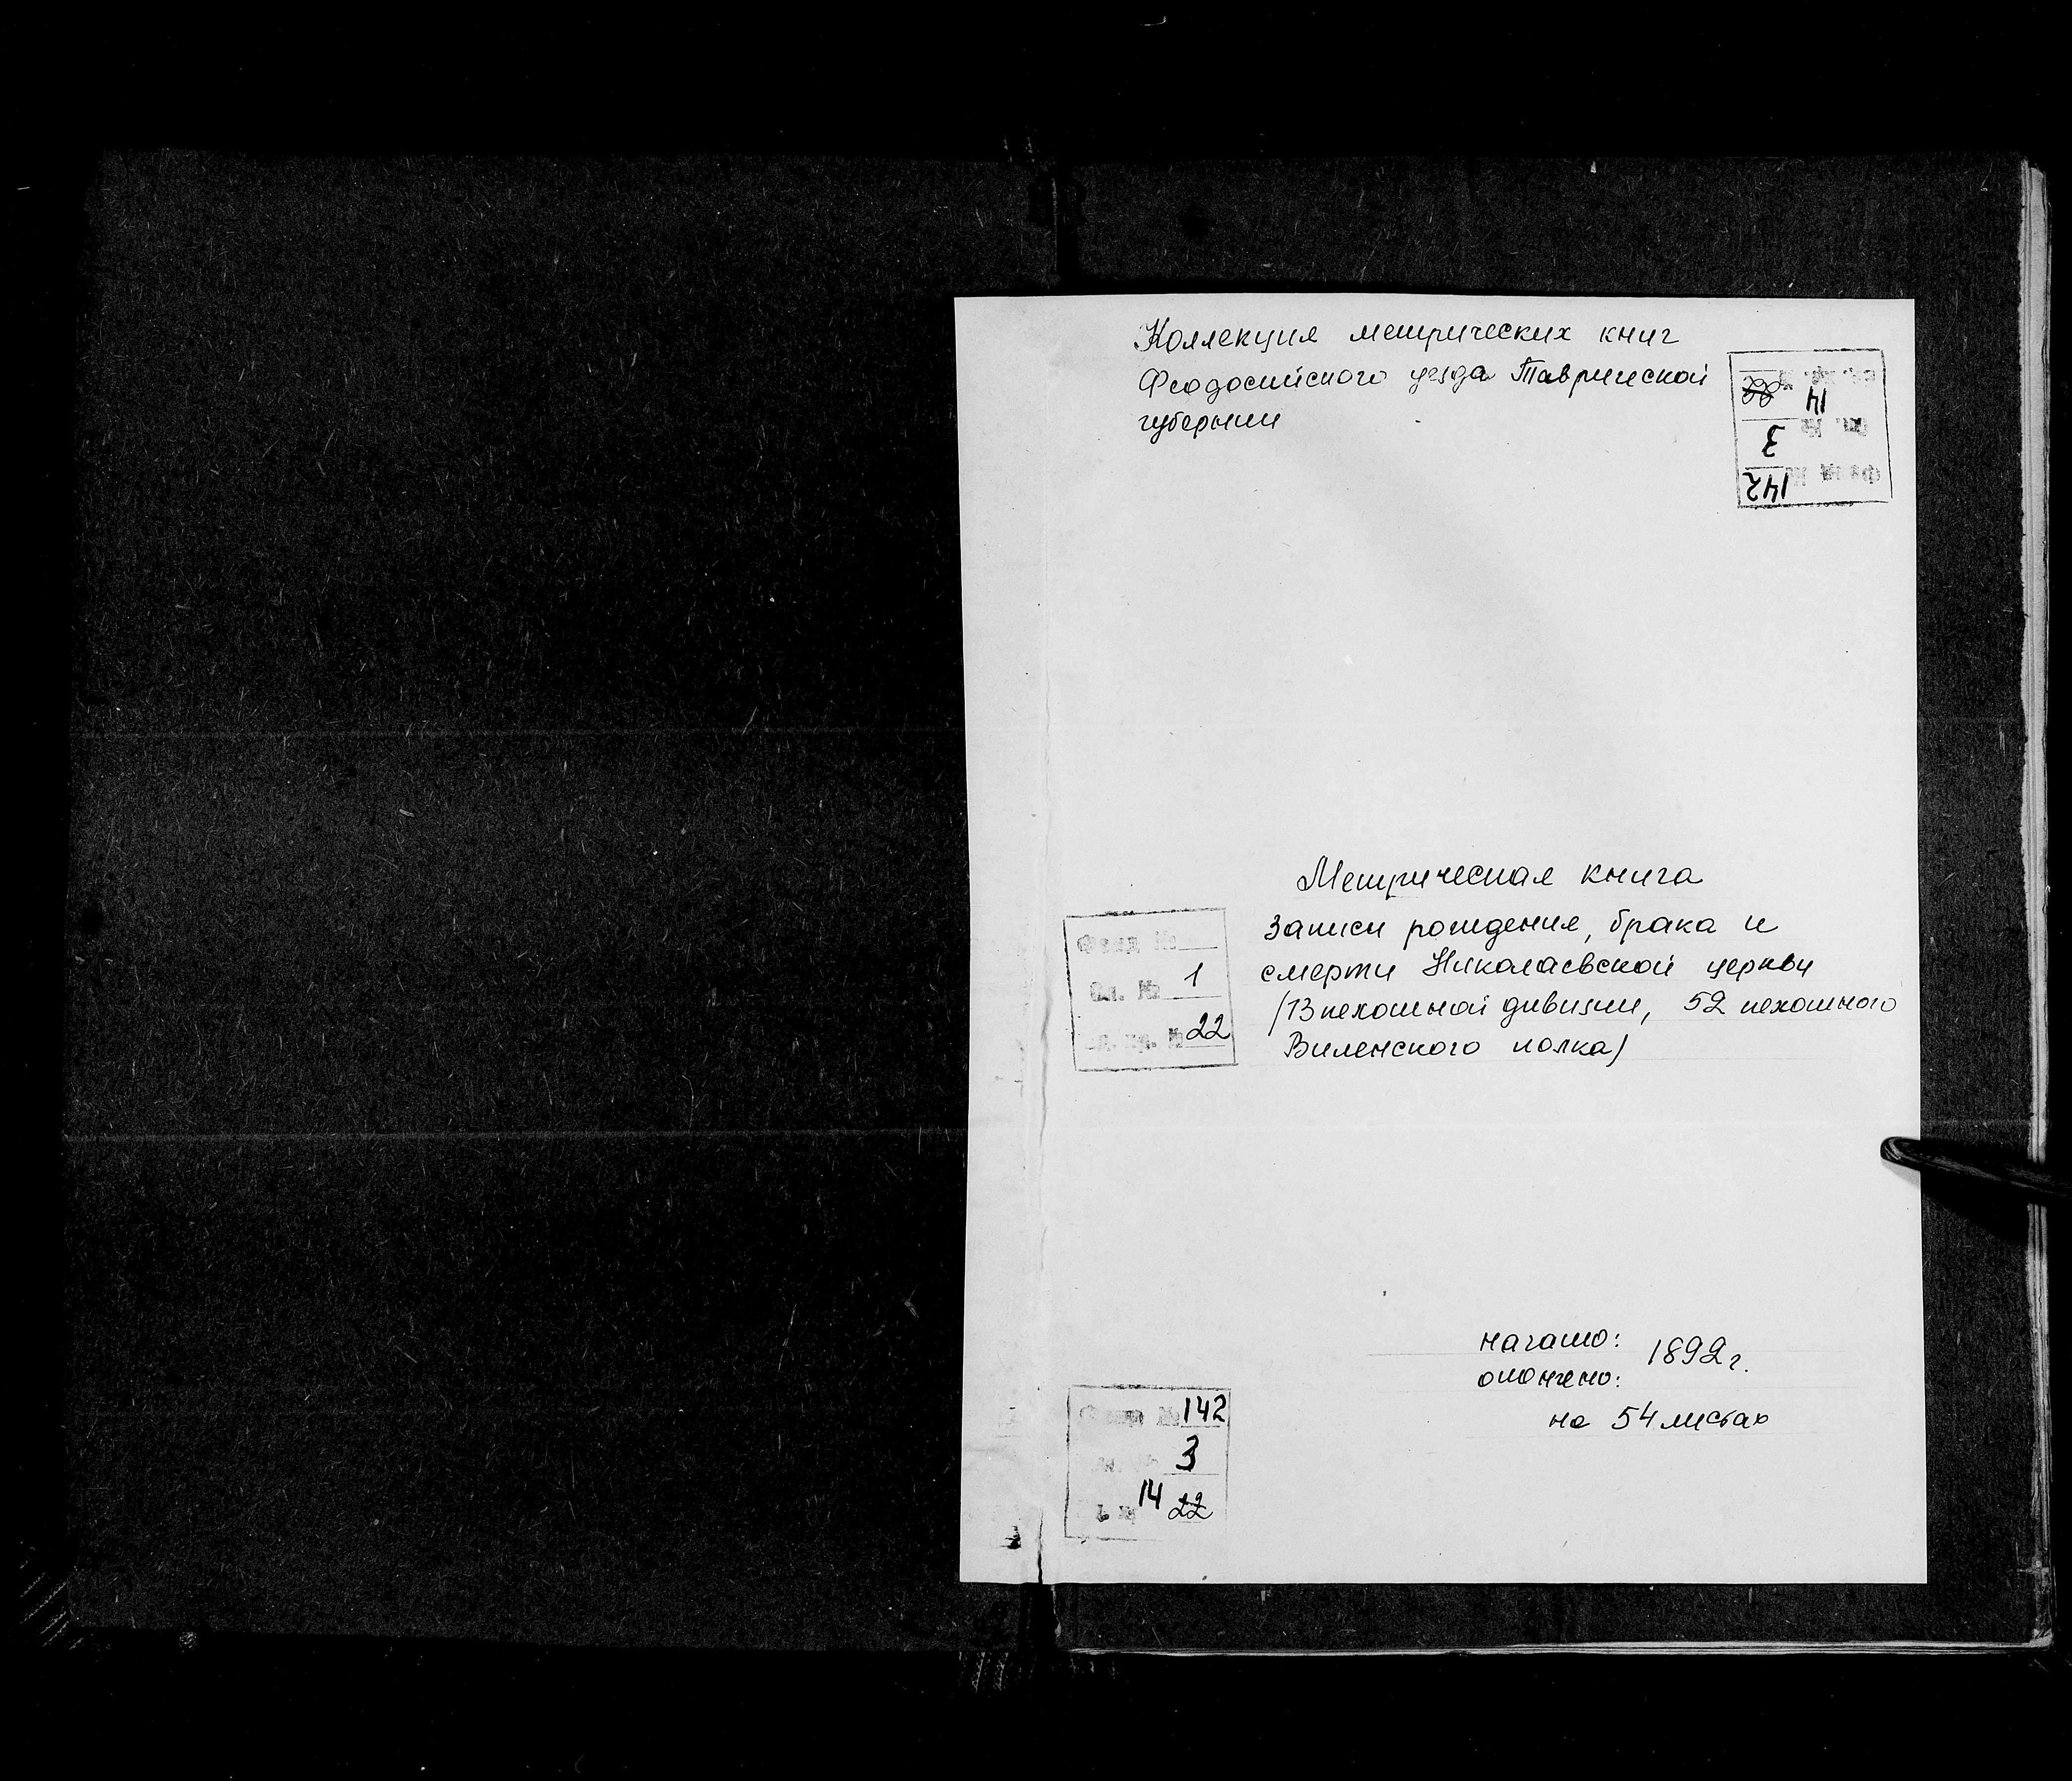 Коллекция метрических книг
Феодосийского уезда Таврической
губернии
Ед. хр. № 14 22
Оп. № 3
Фонд № 142
Метрическая книга
записи рождения, брака и
смерти Николаевской церкви
/13 пехотной дивизии, 52 пехотного
Виленского полка/
Фонд №
Оп. № 1
Ед. хр. № 22
начато:
окончено: 1892 г.
на 54 листах
Фонд № 142
Оп. № 3
14 22